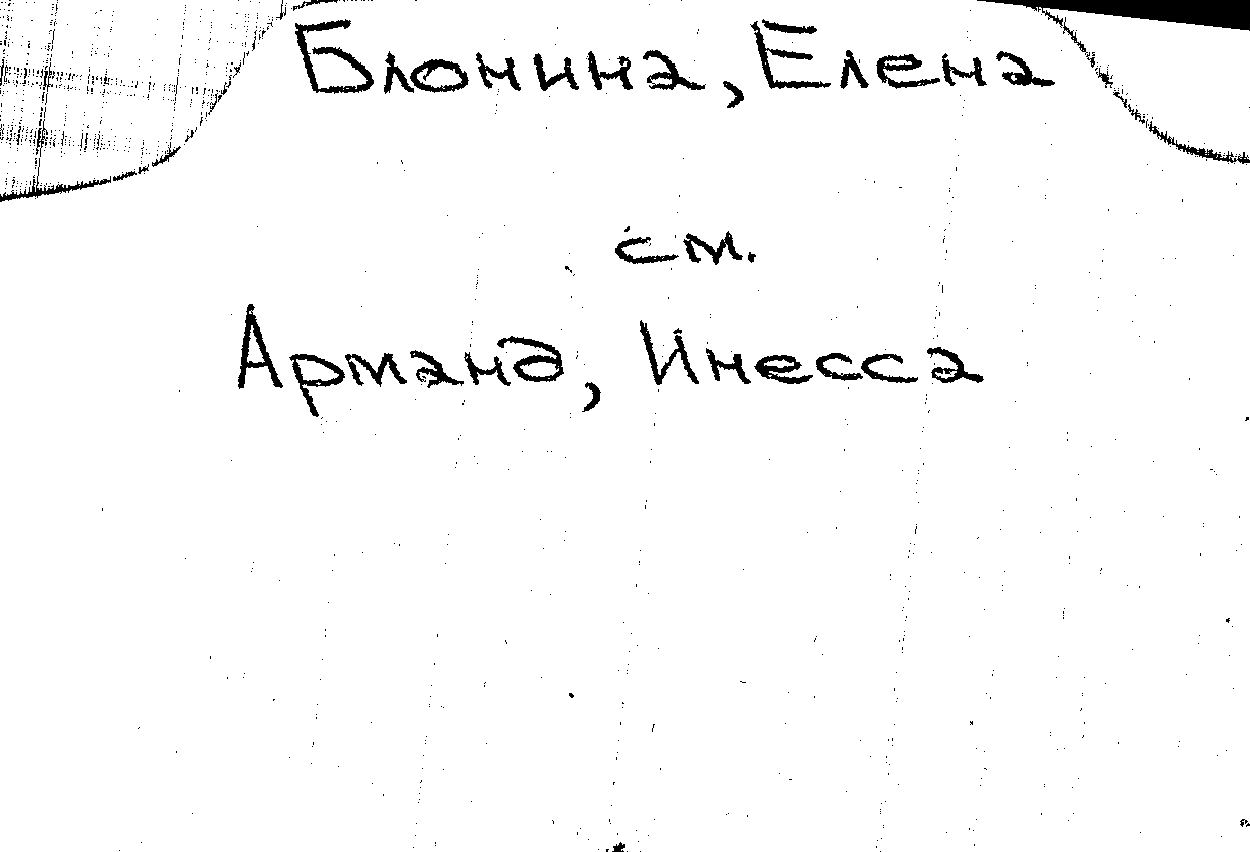 Блонина, Елена
см.
Арманд, Инесса